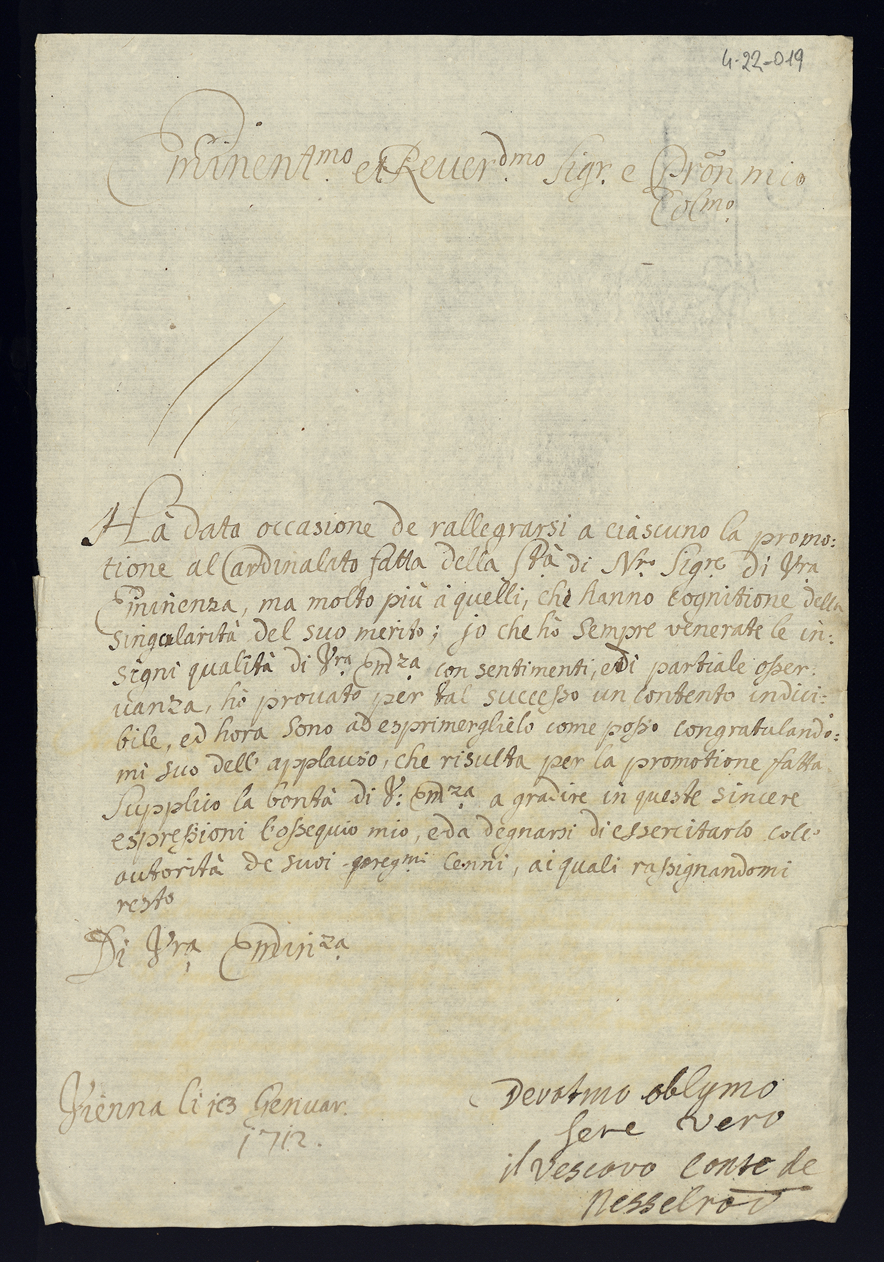 4-22-019
Eminent.mo et Reuer.dmo Sigr. e Prõn mio
Col.mo
Hà data occasione de rallegrarsi a ciascuno la promo:
tione al Cardinalato fatta della S.tà di N.ro Sigre di Vra
Eminenza, ma molto più à quelli, che hanno cognitione della
singularità del suo merito; jo che hò sempre venerate le in:
signi qualità di Vra Em̃za con sentimenti, e di partiale osser:
uanza, hò prouato per tal successo un contento indici:
bile, ed hora sono ad esprimerglielo come posso congratulando:
mi suo dell' applauso, che risulta per la promotione fatta
Supplico la bontà di V: Em̃za a gradire in queste sincere
espressioni l'ossequio mio, e da degnarsi di essercitarlo coll'
autorità de suoi pregmi Cenni, ai quali rassignandomi
resto
Di Vra Em̃inza
Vienna li 13 Genuar.
1712.
Devotmo oblymo
Sere vero
il Vescovo Conte de
Nesselrod